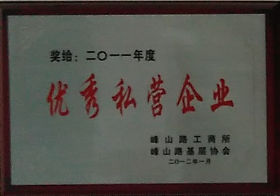 奖给：二〇一一年度
优秀私营企业
峰山路工商所
峰山路基层协会
二〇一二年一月